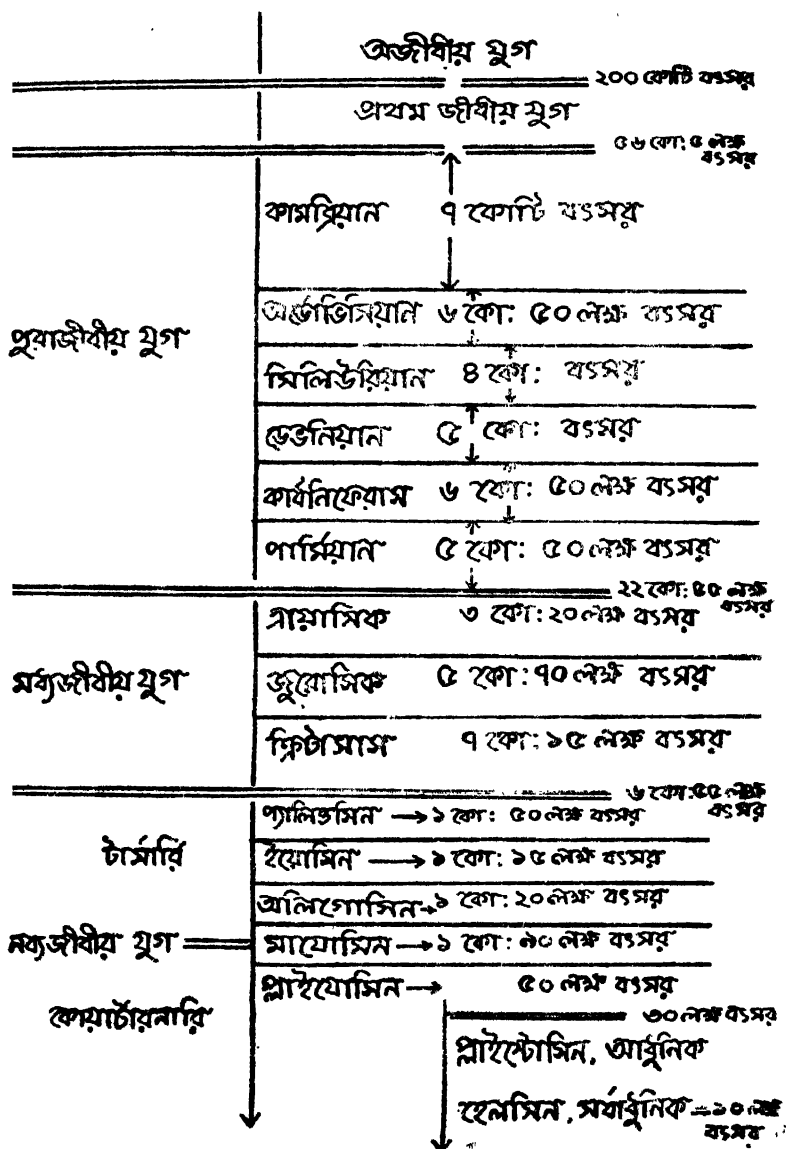 অজীবীয় যুগ
২০০ কোটি বৎসর
প্রথম জীবীয় যুগ
৫৬ কো: ৫ লক্ষ বৎসর
কামব্রিয়ান ৭ কোটি বৎসর
অর্ডোভিসিয়ান ৬ কো: ৫০ লক্ষ বৎসর
পুরাজীবীয় যুগ
সিলিউরিয়ান ৪ কো: বৎসর
ডেভনিয়ান ৫ কো: বৎসর
কার্বনিফেরাস ৬ কো: ৫০ লক্ষ বৎসর
পার্মিয়ান ৫ কো: ৫০ লক্ষ বৎসর
২২ কো: ৫০ লক্ষ বৎসর
ট্রায়াসিক ৩ কো: ২০ লক্ষ বৎসর
মধ্যজীবীয় যুগ
জুরোসিক ৫ কো: ৭০ লক্ষ বৎসর
ক্রিটাসাস ৭ কো: ১৫ লক্ষ বৎসর
৬ কো: ৫০ লক্ষ বৎসর
প্যালিওসিন → ১ কো: ৫০ লক্ষ বৎসর
টার্সারি
ইয়োসিন → ১ কো: ১৫ লক্ষ বৎসর
অলিগোসিন → ১ কো: ২০ লক্ষ বৎসর
নব্যজীবীয় যুগ
মায়োসিন → ১ কো: ৯০ লক্ষ বৎসর
প্লাইয়োসিন → ৫০ লক্ষ বৎসর
কোয়ার্টারনারি
৩০ লক্ষ বৎসর
প্লাইস্টোসিন, আধুনিক
হেলসিন, সর্বাধুনিক — ১০ লক্ষ বৎসর